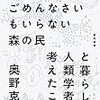 ごめんなさい
もいらない
森の民
と暮らし
人類学者
考えたこ
奥野克